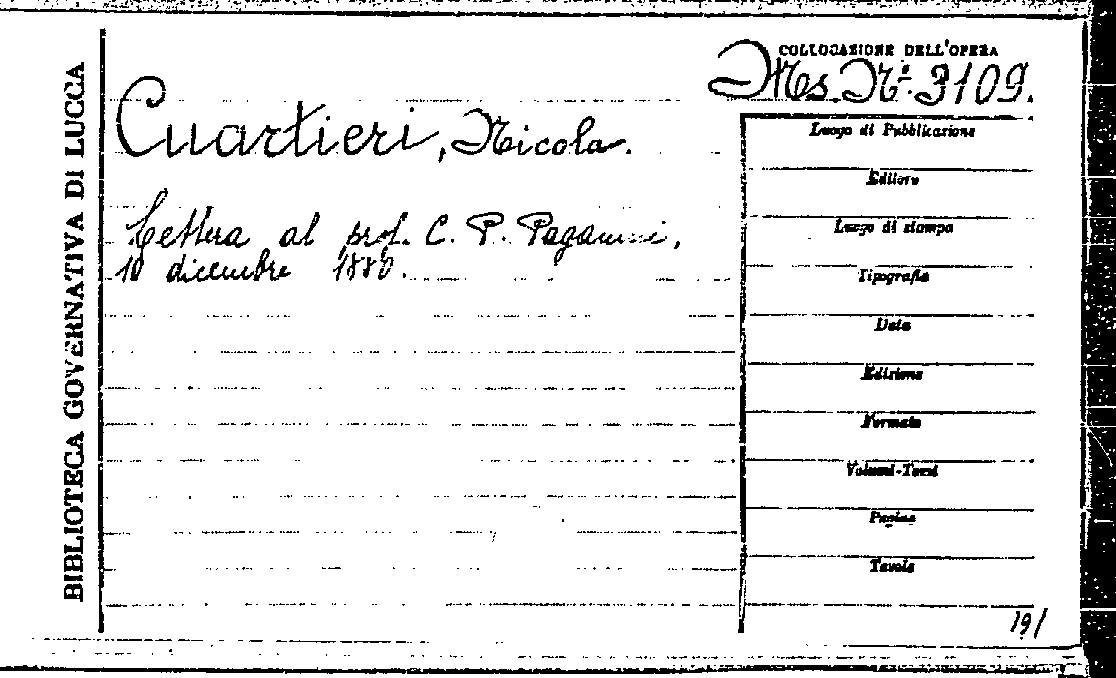 BIBLIOTECA GOVERNATIVA DI LUCCA
COLLOCAZIONE DELL'OPERA
Ms. Nº. 3109.
Cuartieri, Nicola.
Lettera al prof. C. P. Paganini,
10 dicembre 1880.
Luogo di Pubblicazione
Editore
Luogo di stampa
Tipografia
Data
Edizione
Formato
Volumi-Tomi
Pagine
Tavole
19/